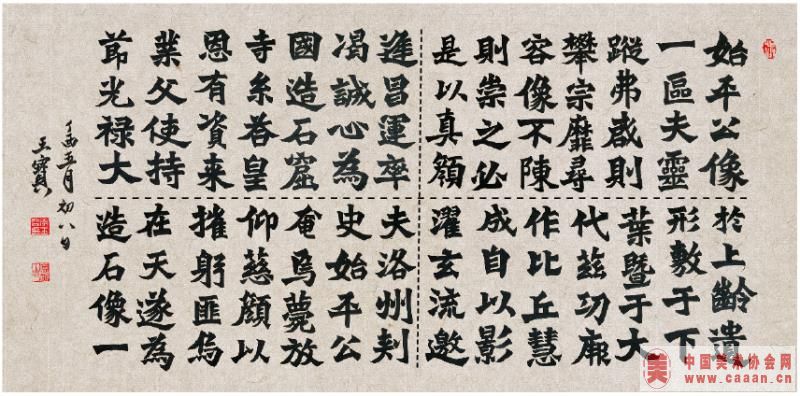 始平公像
一區夫靈
蹤弗啟則
攀宗靡尋
容像不陳
則崇之必
是以真顏
於上齡遺
形敷于下
葉暨于大
代茲功厥
作比丘慧
成自以影
濯玄流邀
進昌運率
渴誠心為
國造石窟
寺糸荅皇
恩有資来
業父使持
節光祿大
夫洛州刾
史始平公
奄焉薨放
仰慈顏以
摧躬匪烏
在天遂為
造石像一
丁酉五月初八日
王寶
中国美术协会网
www.caaan.cn